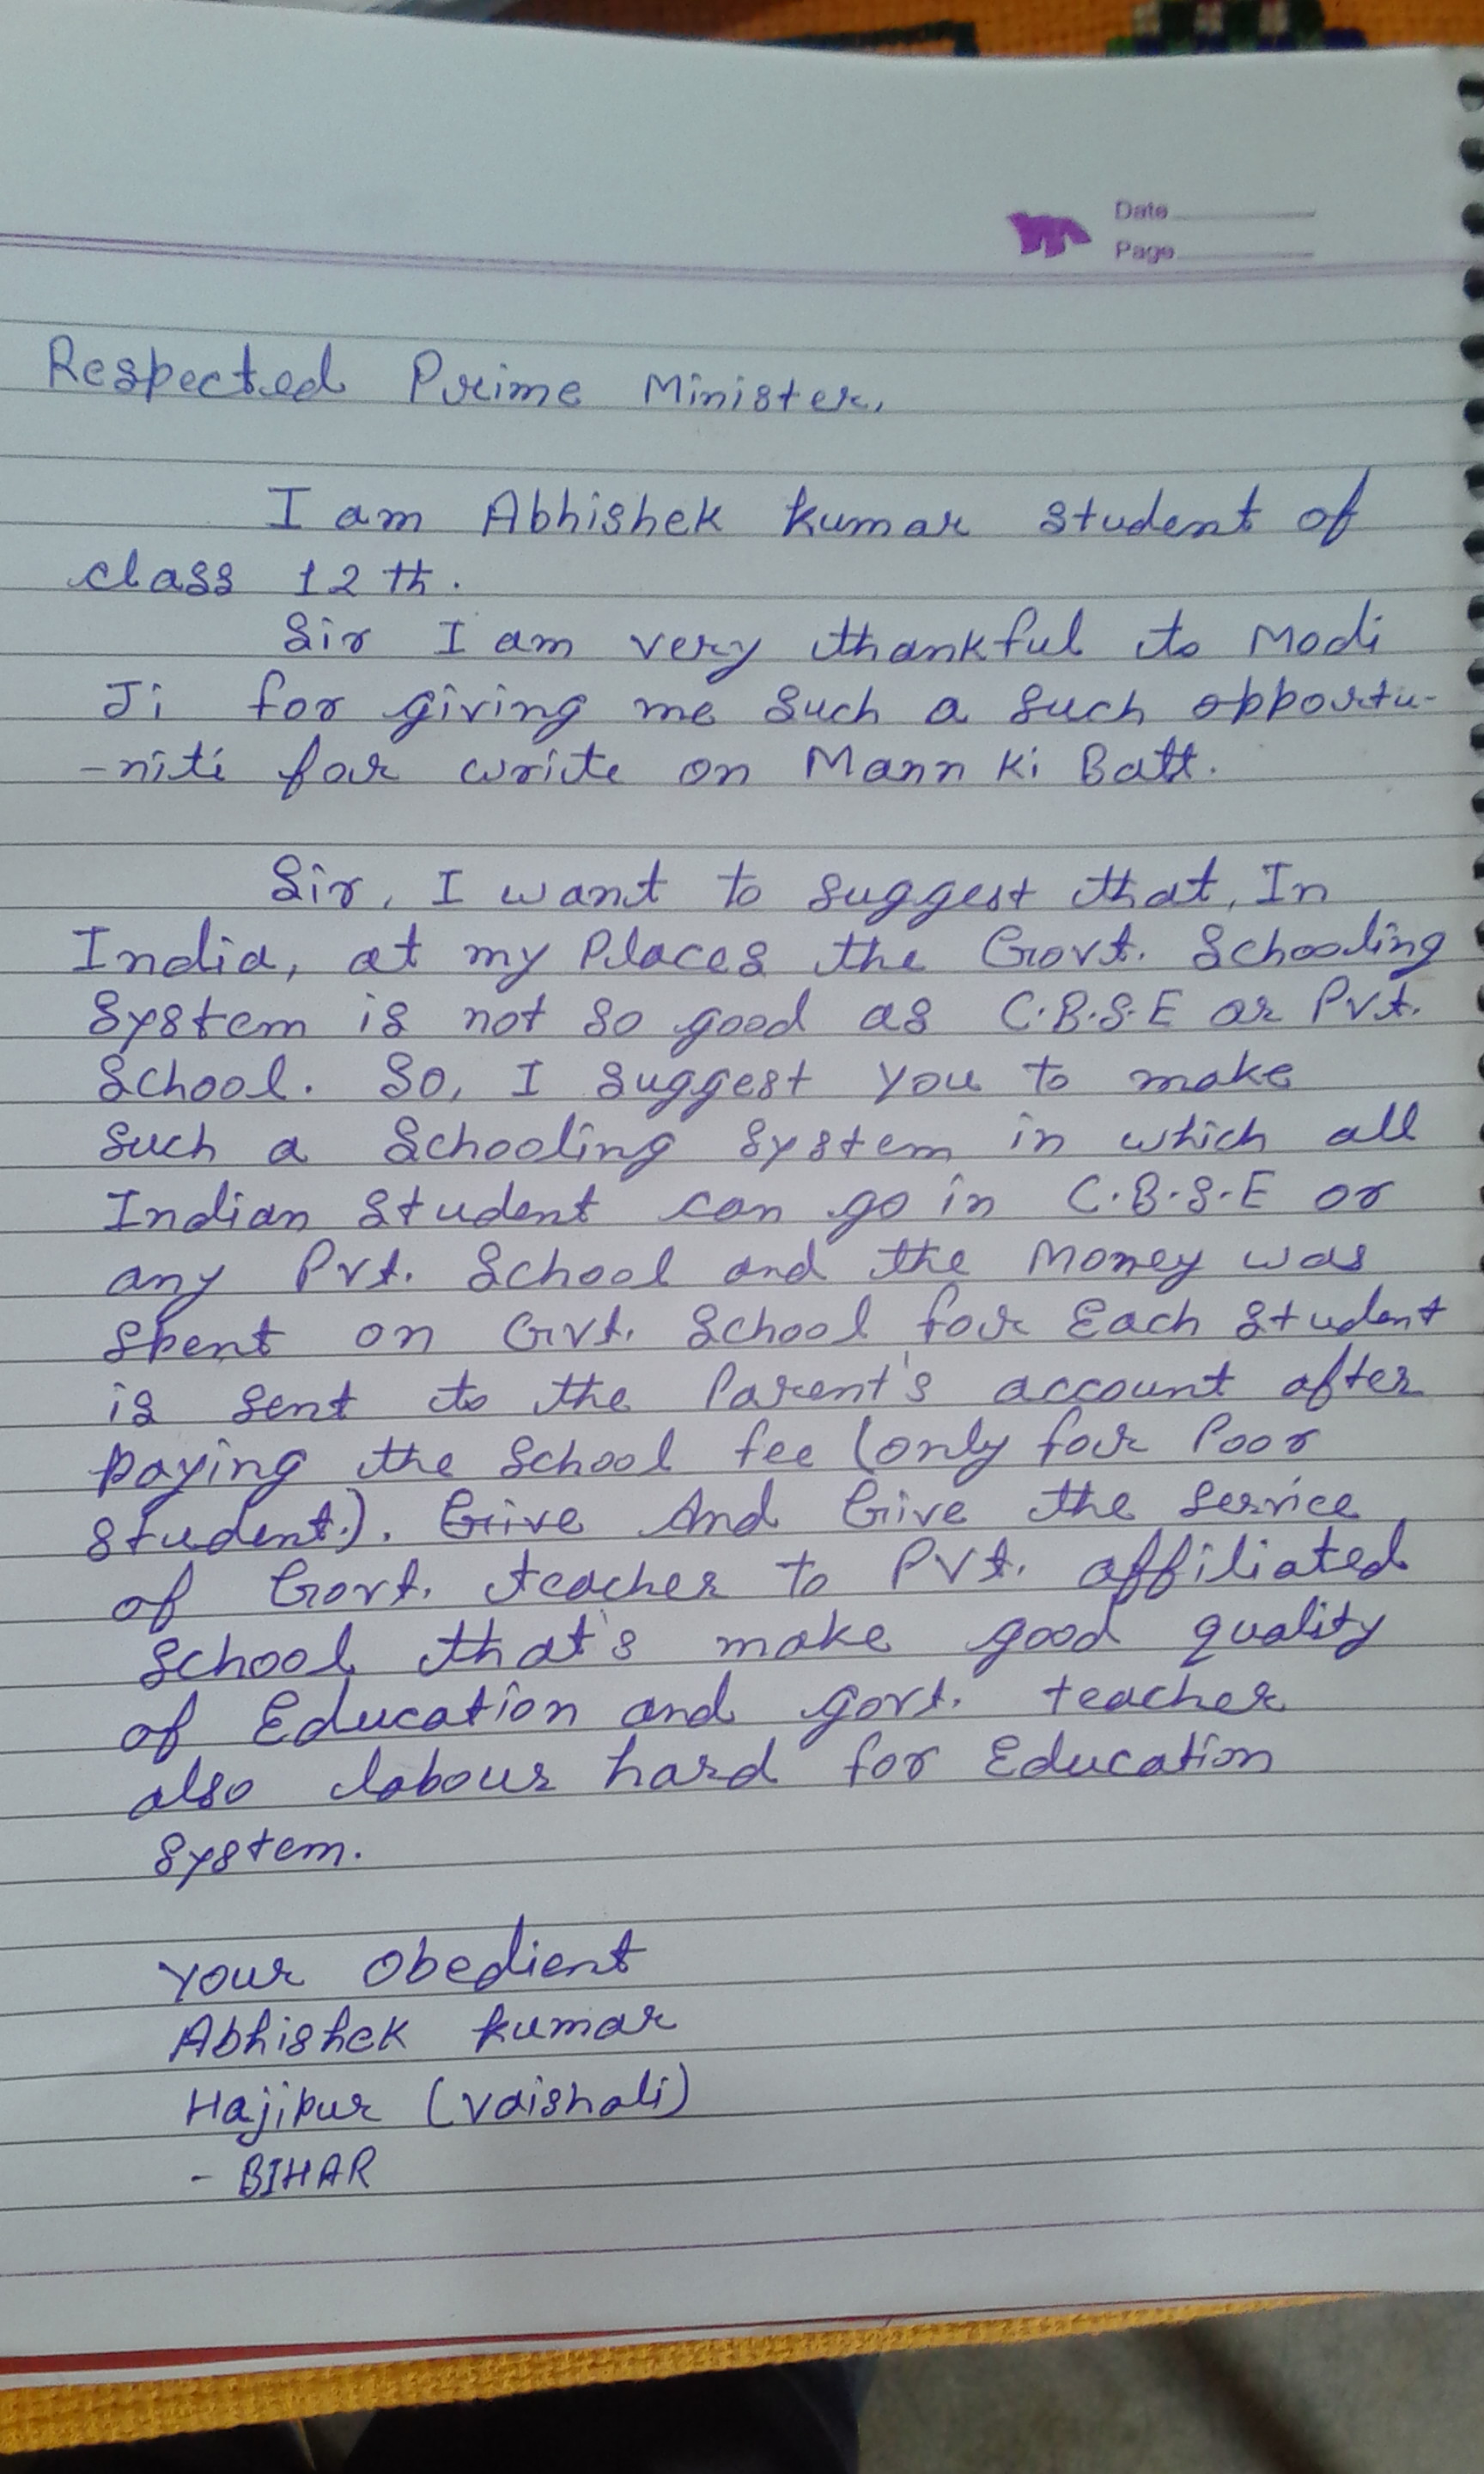 Date
Page
Respected Prime Minister,
I am Abhishek Kumar student of
class 12th.
Sir I am very thankful to Modi
Ji for giving me such a such opportu-
-niti for write on Mann Ki Batt.
Sir, I want to suggest that, In
India, at my Places the Govt. Schooling
System is not so good as C.B.S.E or Pvt.
School. So, I suggest you to make
such a Schooling System in which all
Indian Student can go in C.B.S.E or
any Pvt. School and the Money was
spent on Gvt. School for Each Student
is sent to the Parent's account after
paying the School fee (only for Poor
Student.). Give And Give the Service
of Govt. teacher to Pvt. affiliated
School that's make good quality
of Education and govt. teacher
also labour hard for Education
System.
Your Obedient
Abhishek Kumar
Hajipur (Vaishali)
- BIHAR